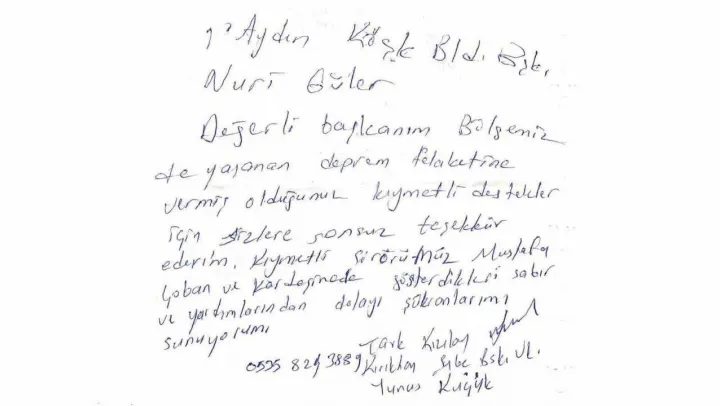 Aydın Köşk Bld. Bşk.
Nuri Güler
Değerli başkanım Bölgeniz
de yaşanan deprem felaketine
vermiş olduğunuz kıymetli destekler
için sizlere sonsuz teşekkür
ederim. Kıymetli şöförümüz Mustafa
Çoban ve Kardeşinede gösterdikleri sabır
ve yardımlarından dolayı şükranlarımı
sunuyorumı
Türk Kızılay
0535 829 3889 Kırıkhan Şube Bşk. Vk.
Yunus Küçük